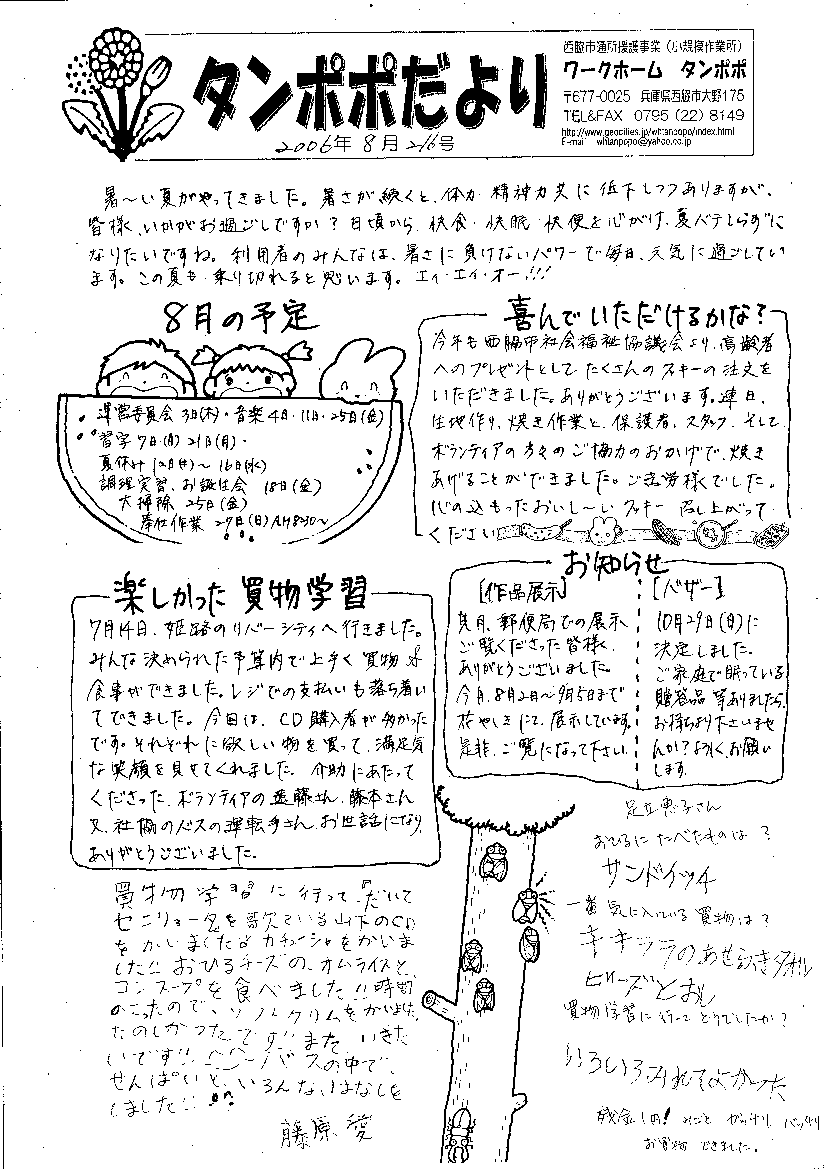 西脇市通所援護事業（小規模作業所）
ワークホーム タンポポ
〒677-0025 兵庫県西脇市大野175
TEL&FAX 0795 (22) 8149
http://www.geocities.jp/whtanpopo/index.html
E-mail whtanpopo@yahoo.co.jp
タンポポだより
2006年 8月 216号
暑～い夏がやってきました。暑さが続くと、体力・精神力共に低下しつつありますが、
皆様、いかがお過ごしですか？日頃から、快食・快眠・快便を心がけ、夏バテしらずに
なりたいですね。利用者のみんなは、暑さに負けないパワーで毎日、元気に過ごしてい
ます。この夏も・乗り切れると思います。エイ・エイ・オー!!!
8月の予定
運営委員会 3日(木)・音楽 4日・11日・25日(金)
習字 7日(月) 21日(月)・
夏休み 12日(土)～16日(水)
調理実習、お誕生会 18日(金)
大掃除 25日(金)
奉仕作業 27日(日) AM8:30～
喜んでいただけるかな？
今年も西脇市社会福祉協議会より、高齢者
へのプレゼントとしてたくさんのクッキーの注文を
いただきました。ありがとうございます。連日、
生地作り、焼き作業と、保護者、スタッフ、そして
ボランティアの方々のご協力のおかげで、焼き
あげることができました。ご苦労様でした。
心の込もったおいし～いクッキー召し上がって
ください
楽しかった買物学習
7月14日、姫路のリバーシティへ行きました。
みんな決められた予算内で上手く買物、
食事ができました。レジでの支払いも落ち着い
てできました。今回は、CD購入者が多かった
です。それぞれに欲しい物を買って、満足気
な笑顔を見せてくれました。介助にあたって
くださった、ボランティアの遠藤さん、藤本さん
又、社協のバスの運転手さん、お世話になり
ありがとうございました。
お知らせ
[作品展示]
先月、郵便局での展示
ご覧くださった皆様、
ありがとうございました。
今月、8月2日～9月5日まで
花やしきにて、展示しています。
是非、ご覧になって下さい。
[バザー]
10月29日(日)に
決定しました。
ご家庭で眠っている
贈答品 等ありましたら、
お持ちより下さいませ
んか？よろしくお願い
します。
買物学習に行って、『だいて
セニョリータ』を歌っている山下のCD
をかいましたよ カチューシャをかいま
した!! おひるチーズの、オムライスと、
コンスープを食べました!! 時間
のこったので、ソフトクリムをかいました
たのしかったです!! また いきた
いです!! バスの中で、
せんぱいと、いろんな、はなしを
しました!!
藤原 愛
足立恵子さん
おひるにたべたものは？
サンドイッチ
一番気に入っている買物は？
キキララのあせふきタオル
ビーズとおし
買物学習に行ってどうでしたか？
いろいろみれてよかった
残金1円！みごと ガッチリ バッチリ
お買物 できました。